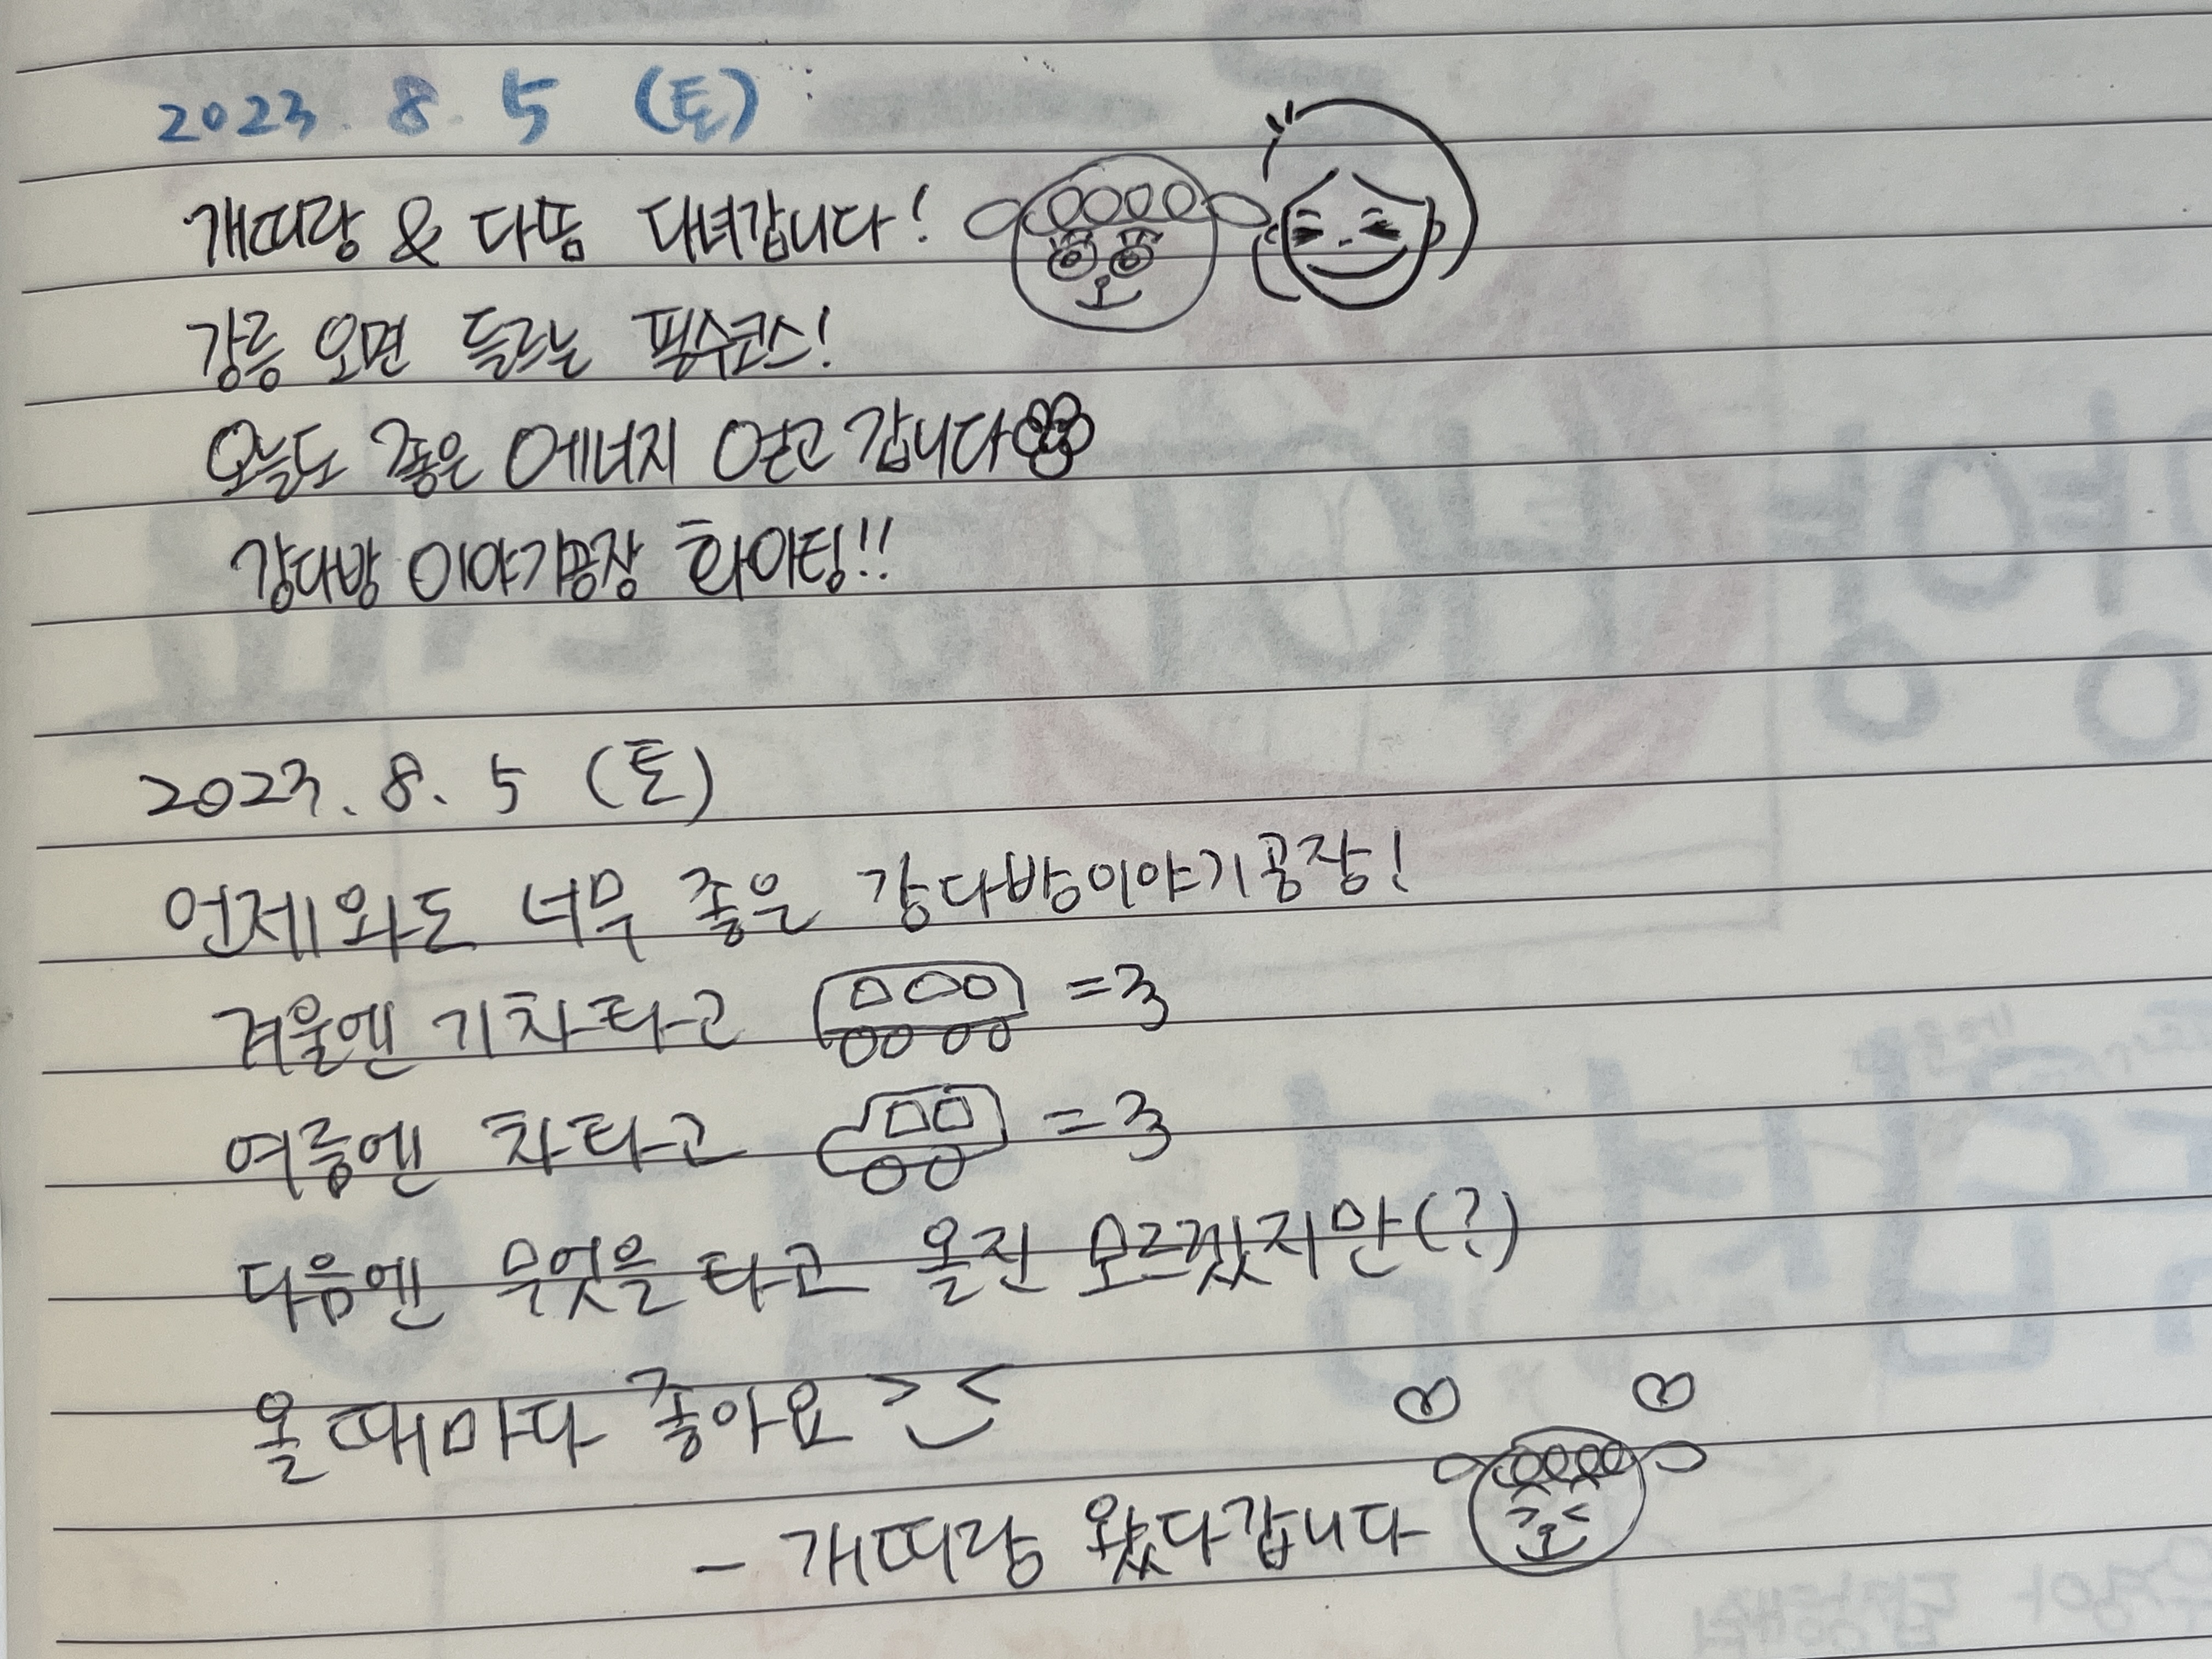 2023. 8. 5 (토)
개띠랑 & 다뜸 다녀갑니다!
강릉 오면 들르는 필수코스!
오늘도 좋은 에너지 얻고 갑니다
강다방 이야기공장 화이팅!!
2023. 8. 5 (토)
언제와도 너무 좋은 강다방이야기공장!
겨울엔 기차타고 =3
여름엔 차타고 =3
다음엔 무엇을 타고 올진 모르겠지만(?)
올때마다 좋아요
- 개띠랑 왔다갑니다